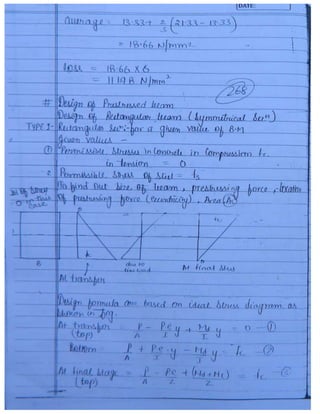 DATE:
average = 13.33 + 2/3 (21.33 - 13.33)
= 18.66 N/mm²
loss = 18.66 × 6
= 111.98 N/mm²
268
# Design of Prestressed beam
Design of Rectangular beam (Symmetrical Secⁿ)
TYPE I- Rectangular Secⁿ for a given value of B.M
Given values -
① Permissible stresses in concrete in Compression fc
in tension = 0
2. Permissible Stress of steel = fs
To find out size of beam, prestressing force, location
of prestressing force (eccentricity), Area (As)
B
fc
fc
due to
live load
At final stage
At transfer
Design formula are based on ideal stress diagram as
shown in fig.
At transfer (top) P/A - Pe/I y + Md/I y = 0 - ①
Bottom P/A + Pe/I . y - Md/I y = fc - ②
At final stage (top) P/A - Pe/Z + (Md + Ml)/Z = fc - ③